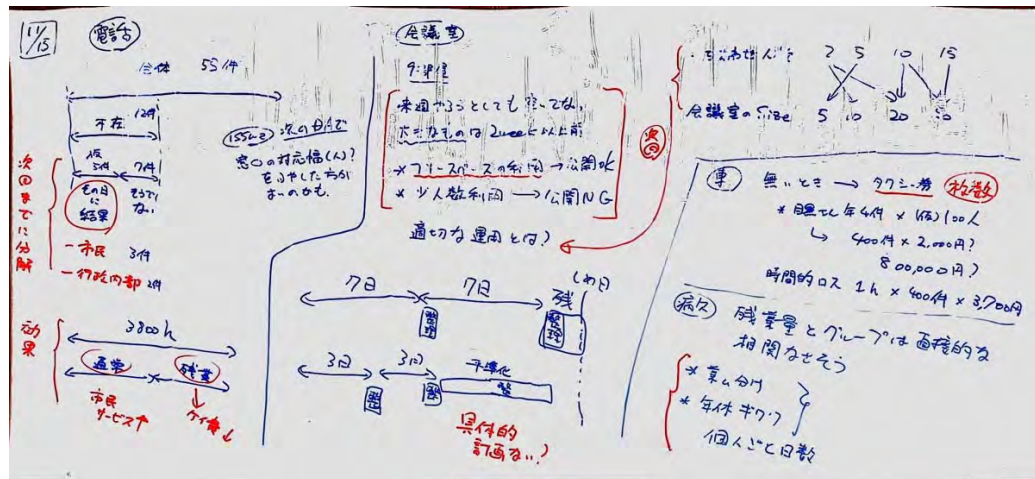 11/15
電話
全体 55件
12件
不在
仮
5件 7件
その日に結果
そうでない
次回までに分解
ー市民 3件
ー行政内部 2件
次のDAで
窓口の対応幅(人)?
を増やした方が
効果
3800h
通常 残業
市民サービス↑
ケイ費↓
会議室
来週やろうとしても空いてない
大きなものは
*フリースペースの利用→公開OK
*少人数利用→公開NG
適切な運用とは?
次回
7日 7日 残 しめ日
整理 整理
3日 3日 平準化
整 整 整
具体的
計画ない?
2 5 10 15
会議室のSize 5 10 20 50
車 無いとき → タクシー券 枚数
年4件 × (仮)100人
↳ 400件 × 2,000円?
800,000円?
時間的ロス 1h × 400件 × 3,700円
残業量とグループは直接的な
相関なさそう
*業ム分け
*年休
個人ごと日数